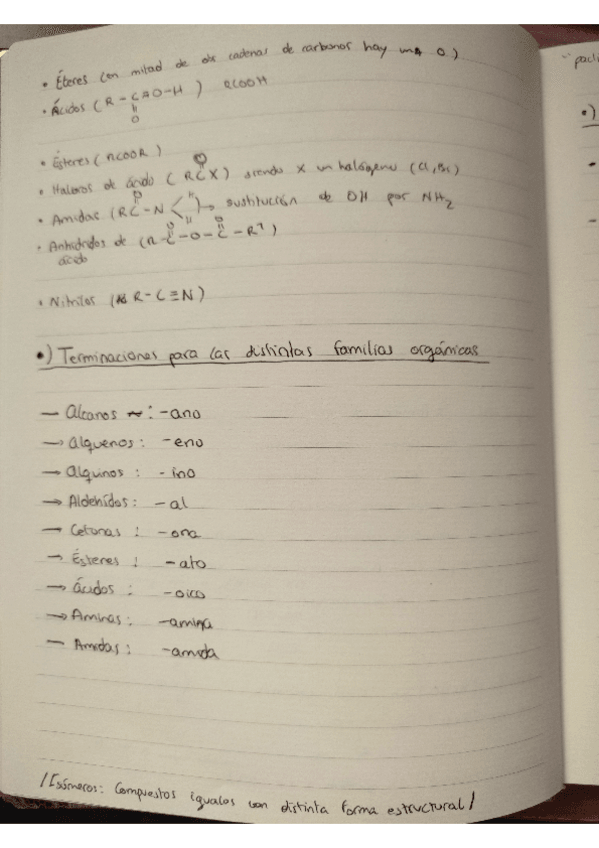 • Éteres (en mitad de dos cadenas de carbonos hay una O)
• Ácidos (R-C-O-H) RCOOH
O
• Ésteres (RCOOR)
• Haluros de ácido (RCX) siendo X un halógeno (Cl, Br)
O
• Amidas (RC-N < H H) → sustitución de OH por NH2
O
• Anhídridos de (R-C-O-C-R')
O O
ácido
• Nitrilos (R-C≡N)
•) Terminaciones para las distintas familias orgánicas
— Alcanos : -ano
→ Alquenos : -eno
→ Alquinos : -ino
→ Aldehídos : -al
→ Cetonas : -ona
→ Ésteres : -ato
→ Ácidos : -oico
→ Aminas : -amina
— Amidas : -amida
/Isómeros: Compuestos iguales con distinta forma estructural/
•)